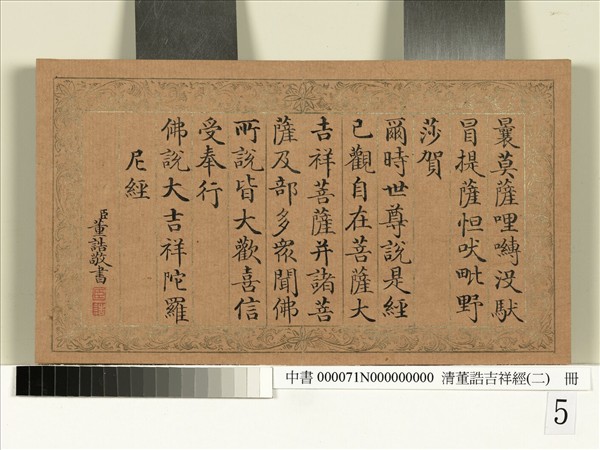 曩莫薩哩嚩没馱
冒提薩怛吠毗野
莎賀
爾時世尊說是經
已觀自在菩薩大
吉祥菩薩并諸菩
薩及部多衆聞佛
所說皆大歡喜信
受奉行
佛說大吉祥陀羅
尼經
臣董誥敬書
中書 000071N000000000 清董誥吉祥經(二) 冊
5